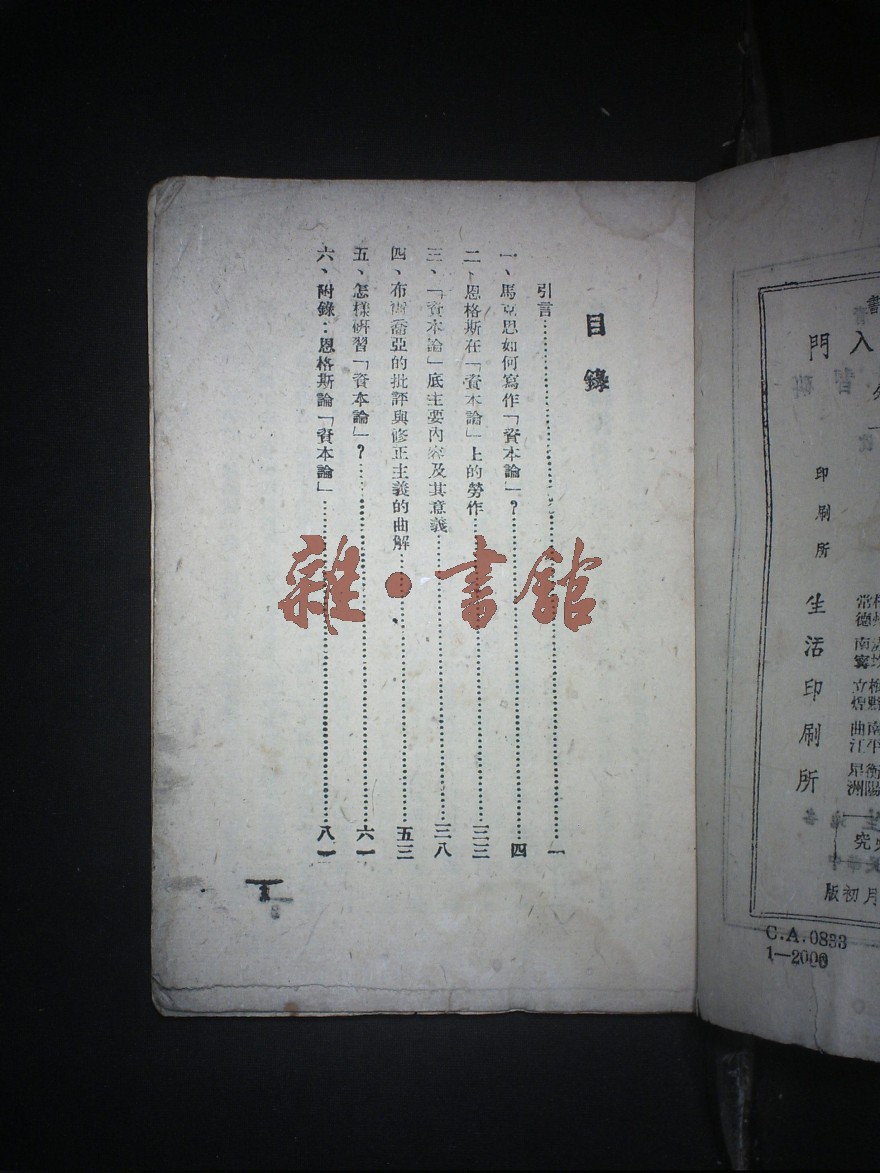 目錄
引言…………一
一、馬克思如何寫作「資本論」？…………四
二、恩格斯在「資本論」上的勞作…………三三
三、「資本論」底主要內容及其意義…………三八
四、布爾喬亞的批評與修正主義的曲解…………五三
五、怎樣研習「資本論」？…………六一
六、附錄：恩格斯論「資本論」…………八一
雜·書館
入門
印刷所
生活印刷所
常德
南寧
立煌
曲江
南平
衡陽
月初版
C.A.0833
1—2000